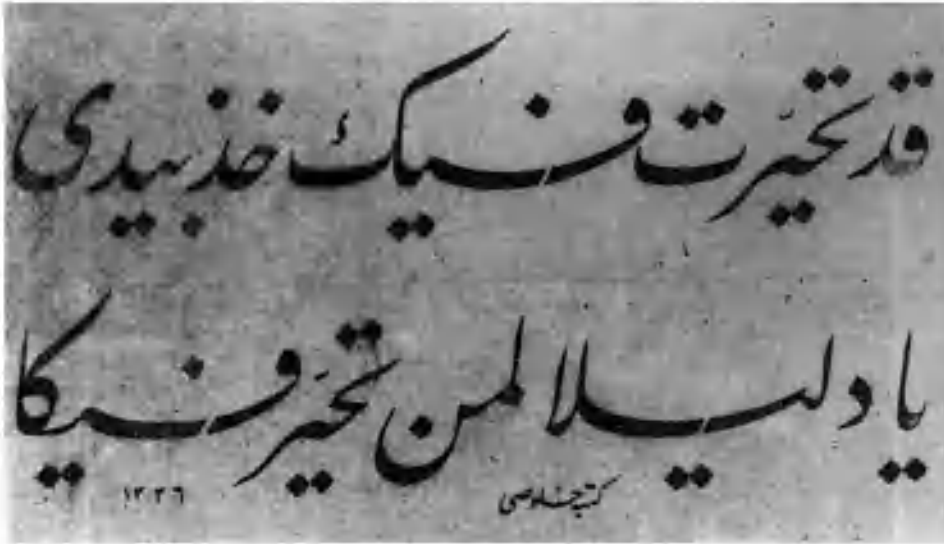 قد تحيّرت فيك خذ بيدى
يا دليلا لمن تحيّر فيكا
كتبه خلوصى
١٣٣٦